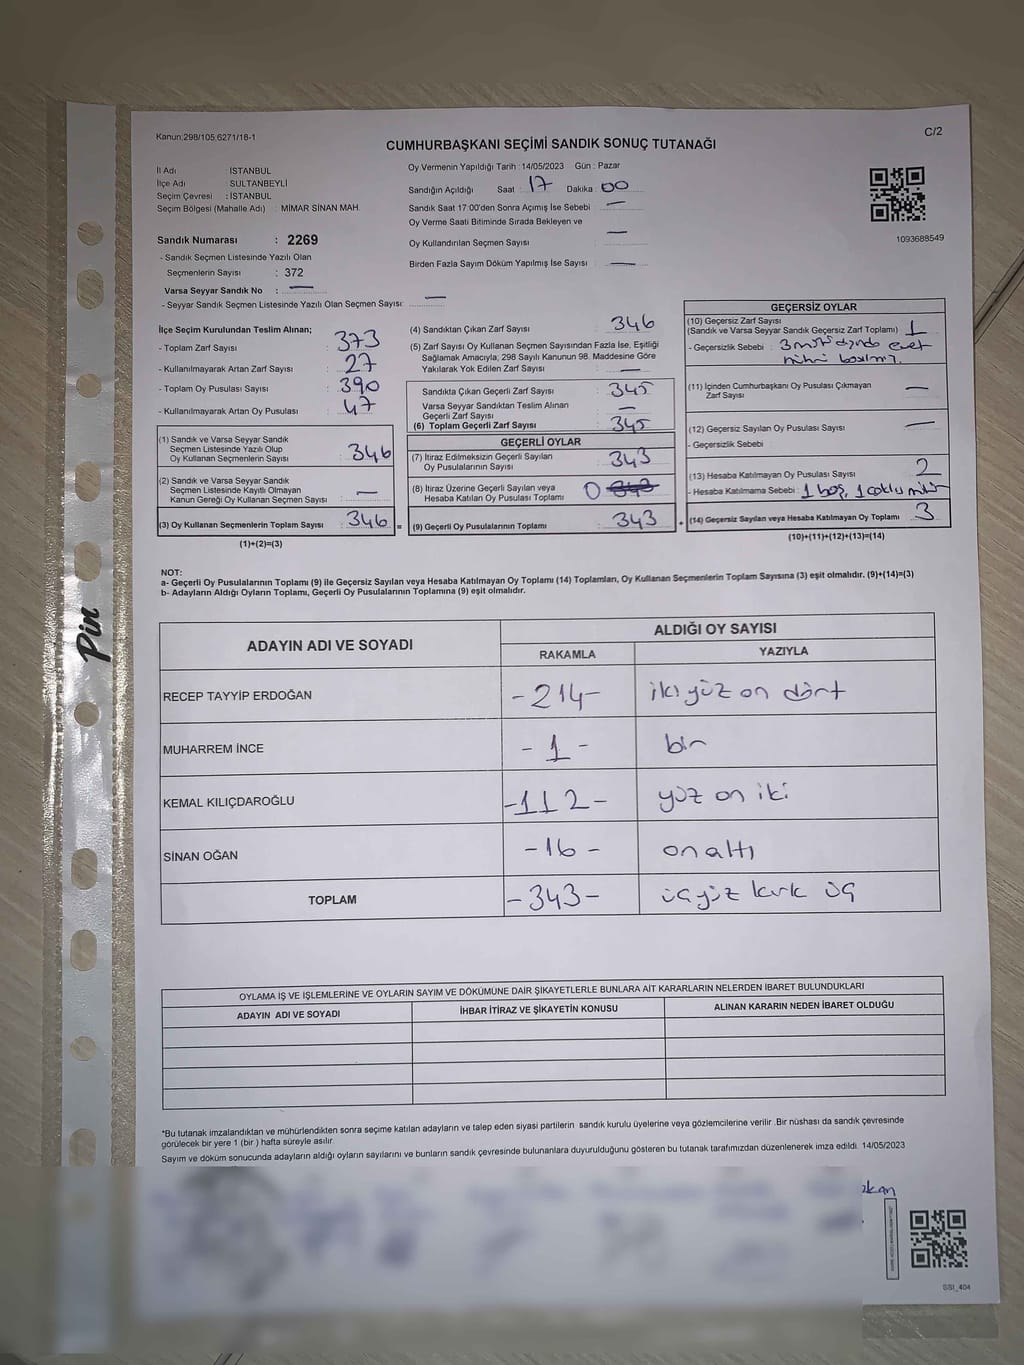 Kanun:298/105,6271/18-1
C/2
CUMHURBAŞKANI SEÇİMİ SANDIK SONUÇ TUTANAĞI
İl Adı : İSTANBUL
İlçe Adı : SULTANBEYLİ
Seçim Çevresi : İSTANBUL
Seçim Bölgesi (Mahalle Adı) : MİMAR SİNAN MAH.
Sandık Numarası : 2269
- Sandık Seçmen Listesinde Yazılı Olan
Seçmenlerin Sayısı : 372
Varsa Seyyar Sandık No : —
- Seyyar Sandık Seçmen Listesinde Yazılı Olan Seçmen Sayısı: —
Oy Vermenin Yapıldığı Tarih : 14/05/2023 Gün : Pazar
Sandığın Açıldığı Saat : 17 Dakika : 00
Sandık Saat 17:00'den Sonra Açımış İse Sebebi : —
Oy Verme Saati Bitiminde Sırada Bekleyen ve
Oy Kullandırılan Seçmen Sayısı : —
Birden Fazla Sayım Döküm Yapılmış İse Sayısı : —
1093688549
İlçe Seçim Kurulundan Teslim Alınan;
- Toplam Zarf Sayısı : 373
- Kullanılmayarak Artan Zarf Sayısı : 27
- Toplam Oy Pusulası Sayısı : 390
- Kullanılmayarak Artan Oy Pusulası : 47
(1) Sandık ve Varsa Seyyar Sandık
Seçmen Listesinde Yazılı Olup
Oy Kullanan Seçmenlerin Sayısı : 346
(2) Sandık ve Varsa Seyyar Sandık
Seçmen Listesinde Kayıtlı Olmayan
Kanun Gereği Oy Kullanan Seçmen Sayısı : —
(3) Oy Kullanan Seçmenlerin Toplam Sayısı : 346 =
(1)+(2)=(3)
(4) Sandıktan Çıkan Zarf Sayısı : 346
(5) Zarf Sayısı Oy Kullanan Seçmen Sayısından Fazla İse, Eşitliği
Sağlamak Amacıyla, 298 Sayılı Kanunun 98. Maddesine Göre
Yakılarak Yok Edilen Zarf Sayısı : —
Sandıkta Çıkan Geçerli Zarf Sayısı : 345
Varsa Seyyar Sandıktan Teslim Alınan
Geçerli Zarf Sayısı : —
(6) Toplam Geçerli Zarf Sayısı : 345
GEÇERLİ OYLAR
(7) İtiraz Edilmeksizin Geçerli Sayılan
Oy Pusulalarının Sayısı : 343
(8) İtiraz Üzerine Geçerli Sayılan veya
Hesaba Katılan Oy Pusulası Toplamı : 0
(9) Geçerli Oy Pusulalarının Toplamı : 343 +
GEÇERSİZ OYLAR
(10) Geçersiz Zarf Sayısı
(Sandık ve Varsa Seyyar Sandık Geçersiz Zarf Toplamı) : 1
- Geçersizlik Sebebi : 3 mührün dışında evet
mührü basılmış.
(11) İçinden Cumhurbaşkanı Oy Pusulası Çıkmayan
Zarf Sayısı : —
(12) Geçersiz Sayılan Oy Pusulası Sayısı : —
- Geçersizlik Sebebi :
(13) Hesaba Katılmayan Oy Pusulası Sayısı : 2
- Hesaba Katılmama Sebebi : 1 boş, 1 çoklu mühür
(14) Geçersiz Sayılan veya Hesaba Katılmayan Oy Toplamı : 3
(10)+(11)+(12)+(13)=(14)
NOT:
a- Geçerli Oy Pusulalarının Toplamı (9) ile Geçersiz Sayılan veya Hesaba Katılmayan Oy Toplamı (14) Toplamları, Oy Kullanan Seçmenlerin Toplam Sayısına (3) eşit olmalıdır. (9)+(14)=(3)
b- Adayların Aldığı Oyların Toplamı, Geçerli Oy Pusulalarının Toplamına (9) eşit olmalıdır.
ADAYIN ADI VE SOYADI
ALDIĞI OY SAYISI
RAKAMLA YAZIYLA
RECEP TAYYİP ERDOĞAN -214- iki yüz on dört
MUHARREM İNCE -1- bir
KEMAL KILIÇDAROĞLU -112- yüz on iki
SİNAN OĞAN -16- on altı
TOPLAM -343- üç yüz kırk üç
OYLAMA İŞ VE İŞLEMLERİNE VE OYLARIN SAYIM VE DÖKÜMÜNE DAİR ŞİKAYETLERLE BUNLARA AİT KARARLARIN NELERDEN İBARET BULUNDUKLARI
ADAYIN ADI VE SOYADI İHBAR İTİRAZ VE ŞİKAYETİN KONUSU ALINAN KARARIN NEDEN İBARET OLDUĞU
*Bu tutanak imzalandıktan ve mühürlendikten sonra seçime katılan adayların ve talep eden siyasi partilerin sandık kurulu üyelerine veya gözlemcilerine verilir .Bir nüshası da sandık çevresinde
görülecek bir yere 1 (bir ) hafta süreyle asılır.
Sayım ve döküm sonucunda adayların aldığı oyların sayılarını ve bunların sandık çevresinde bulunanlara duyurulduğunu gösteren bu tutanak tarafımızdan düzenlenerek imza edildi. 14/05/2023
SSI_404
Pin